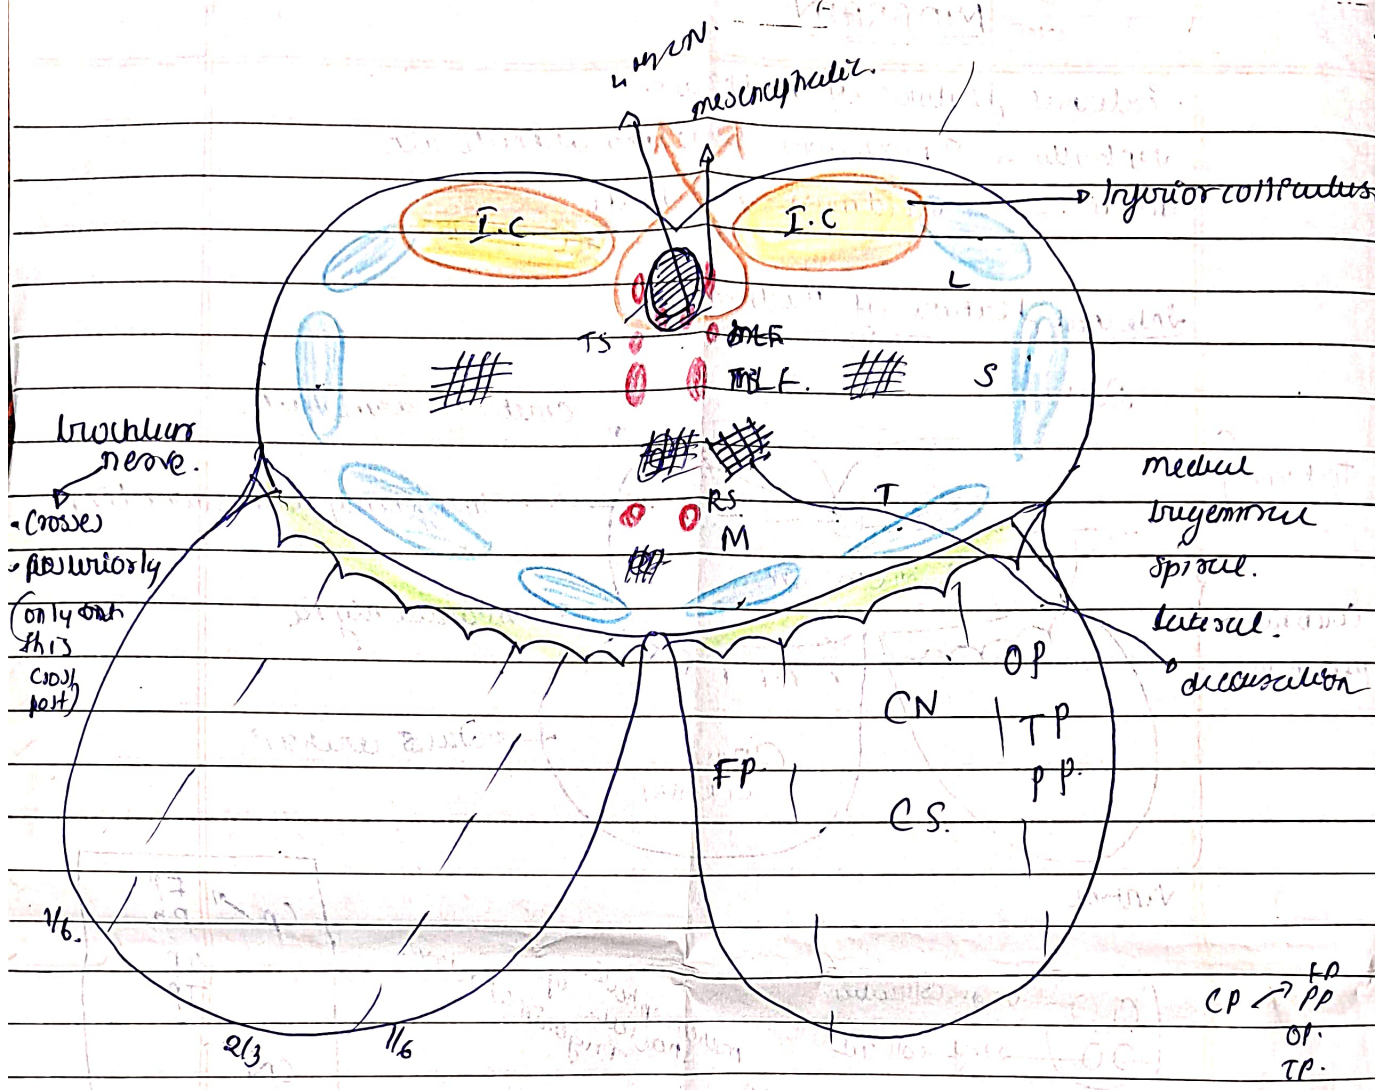 mesencephalic.
I.C
I.C
Inferior colliculus
L
TS
MLF.
S
trochlear
nerve.
• Crosses
• posteriorly
(only
this
cross
post)
T
RS.
M
medial
trigeminal
spinal.
lateral.
decussation
OP
CN
TP
FP.
PP.
CS.
1/6.
2/3
1/6
FP
CP PP
OP.
TP.